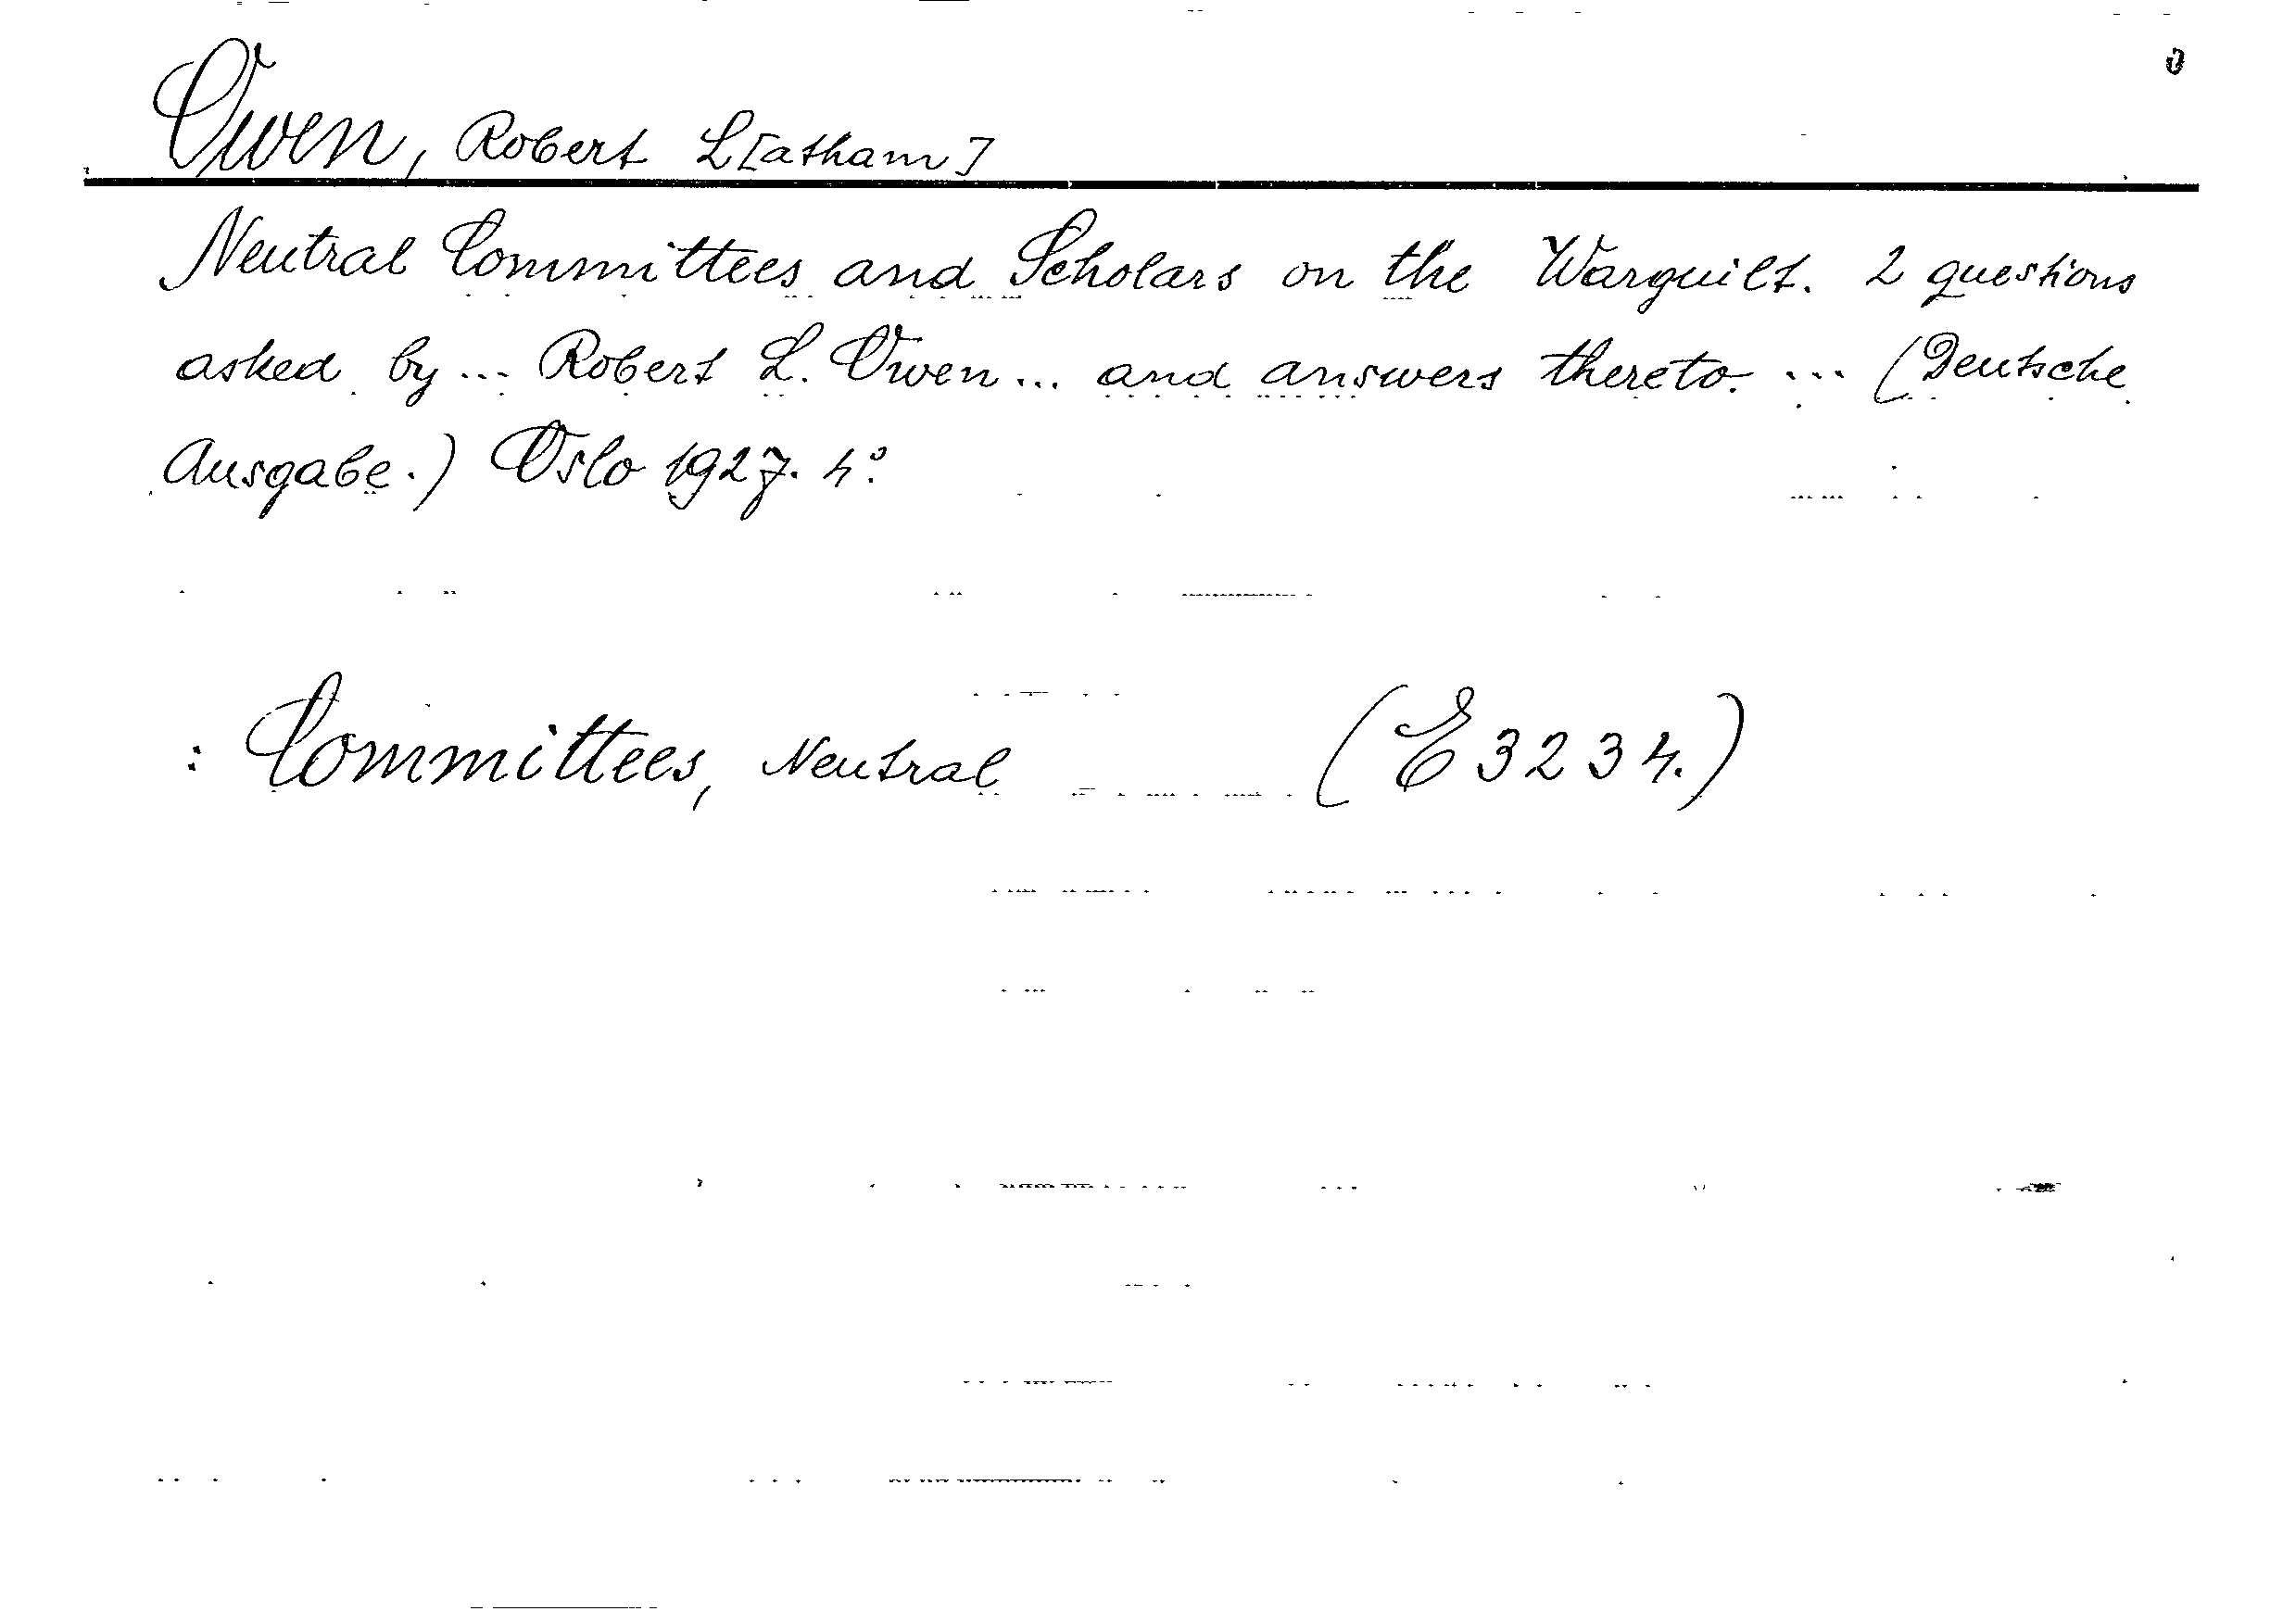 Owen, Robert L[atham]
Neutral Committees and Scholars on the Warguilt. 2 questions
asked by ... Robert L. Owen ... and answers thereto. ... (Deutsche
Ausgabe.) Oslo 1927. 4°.
: Committees, Neutral (E 3234.)